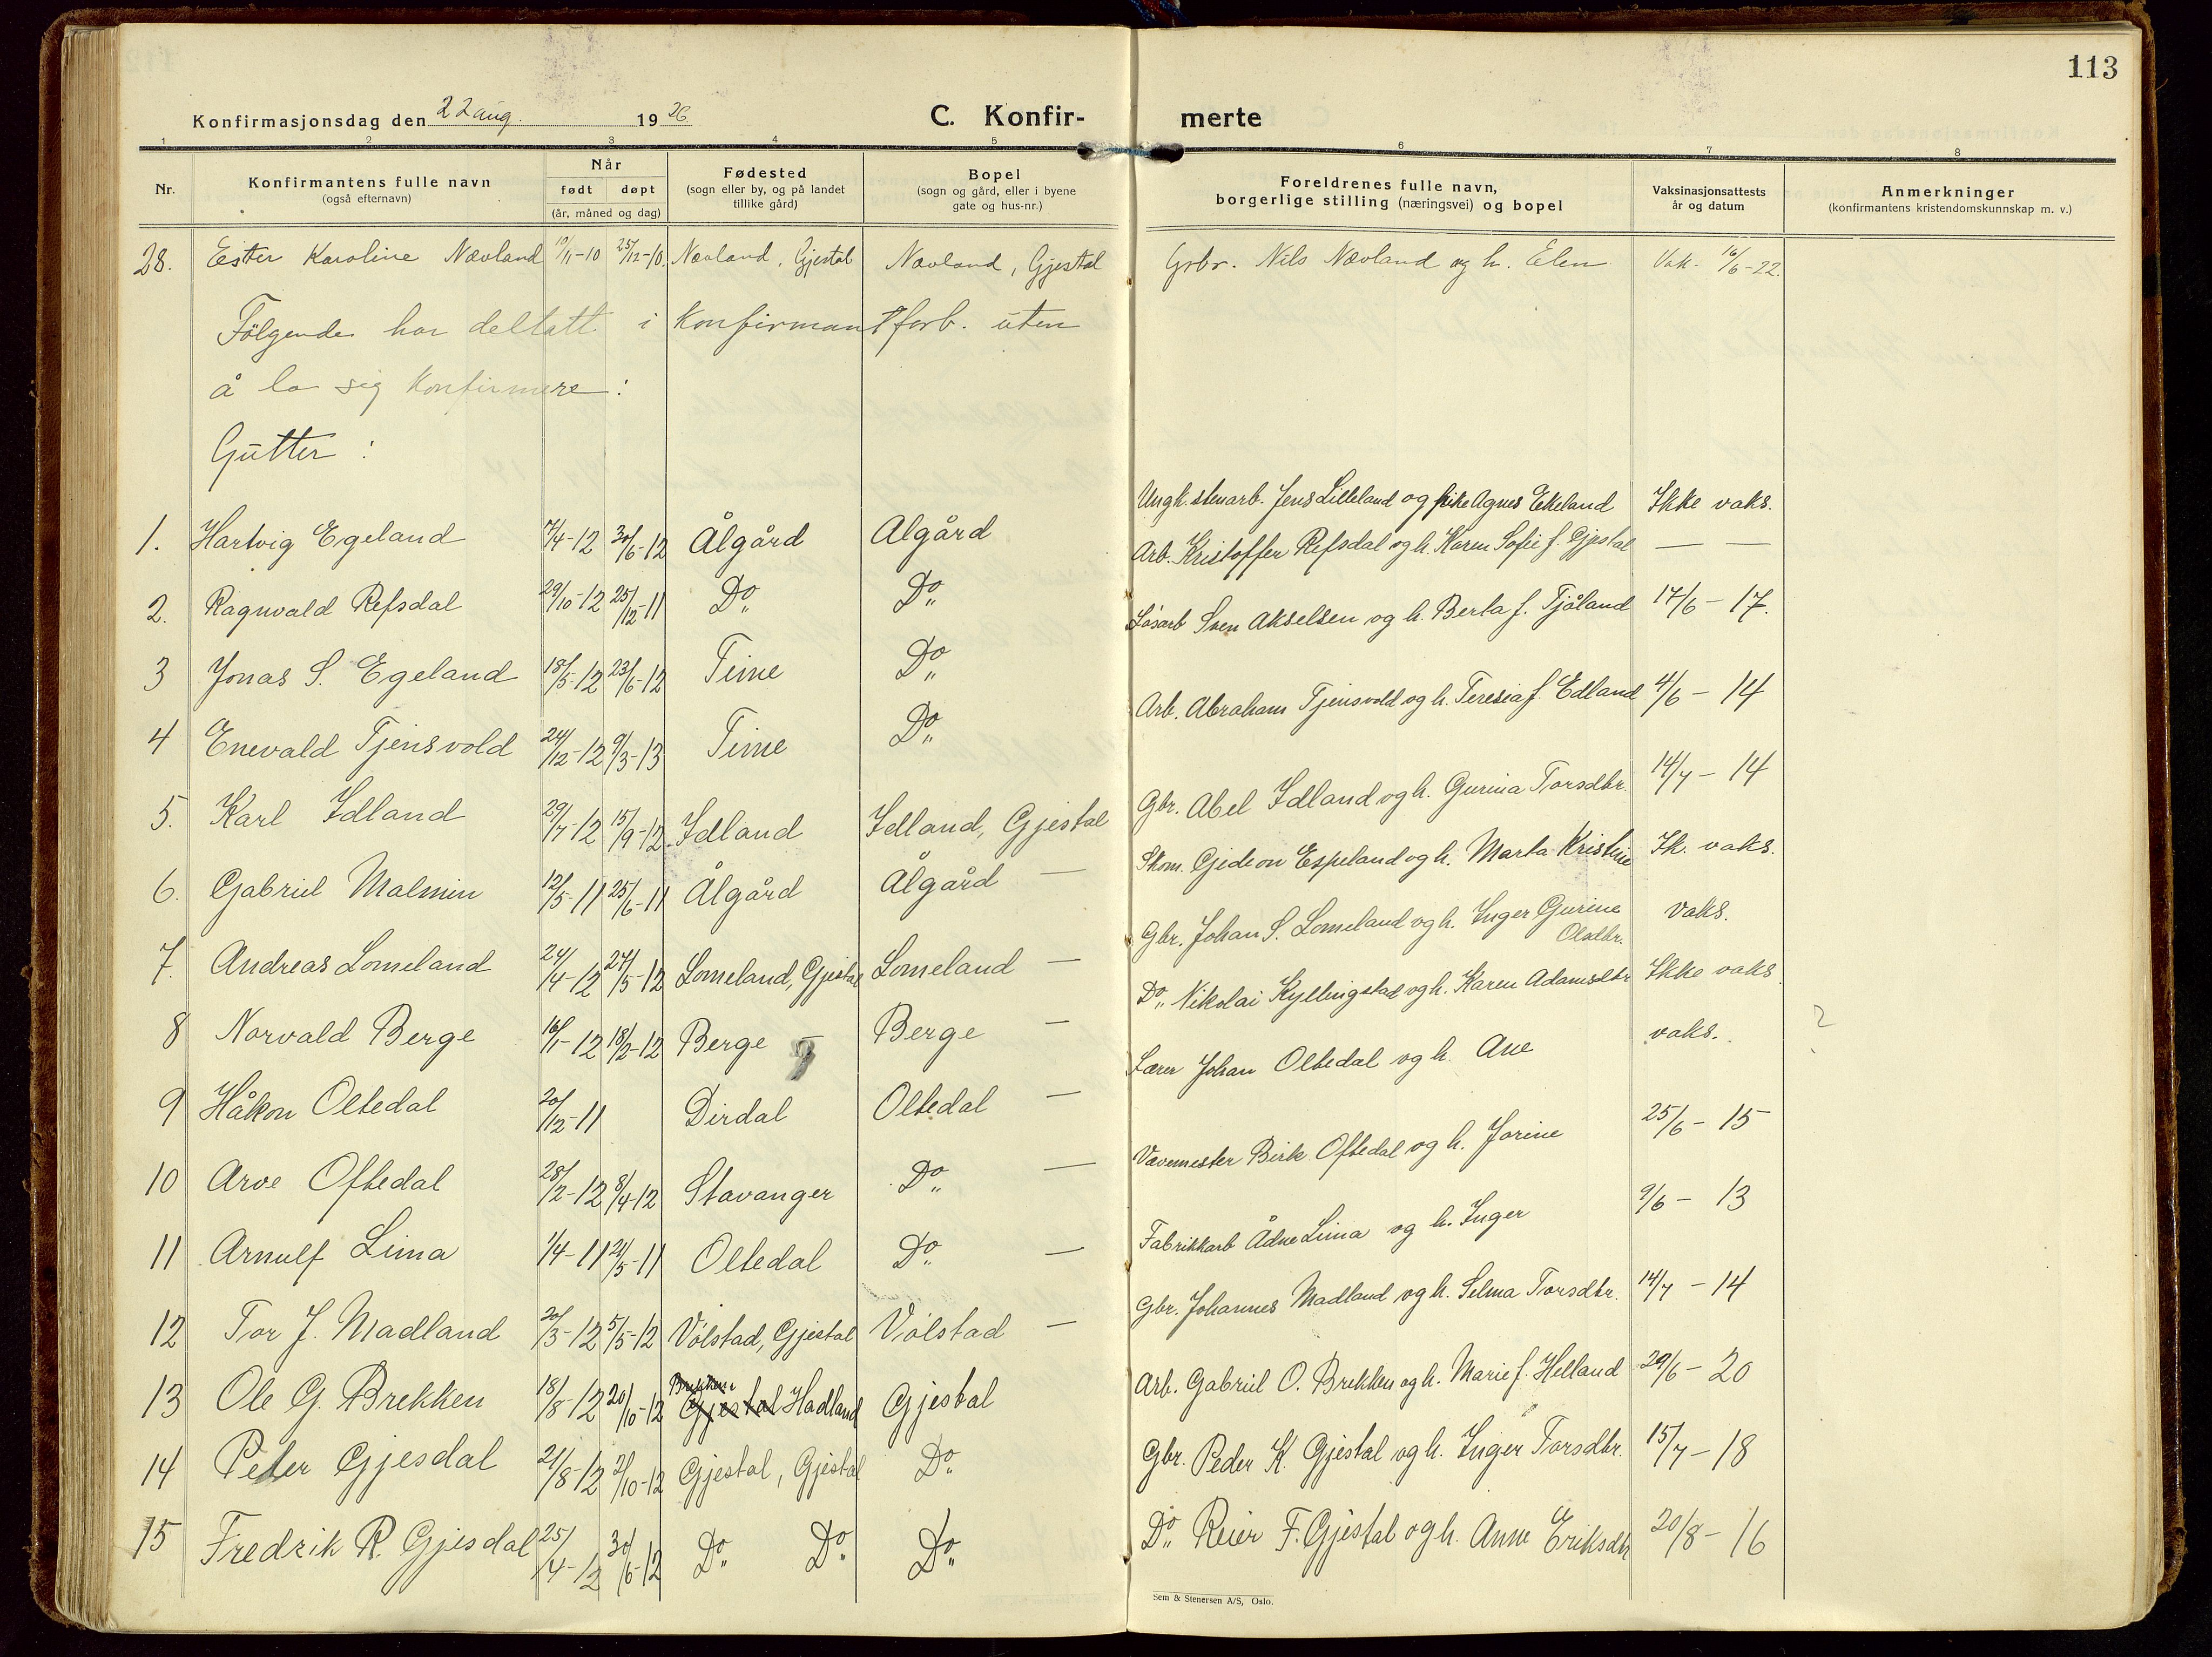 113
Konfirmasjonsdag den 22 aug. 1926. C. Konfir- merte
1 2 3 4 5 6 7 8
Nr. Konfirmantens fulle navn (også efternavn) Når født døpt (år, måned og dag) Fødested (sogn eller by, og på landet tillike gård) Bopel (sogn og gård, eller i byene gate og hus-nr.) Foreldrenes fulle navn, borgerlige stilling (næringsvei) og bopel Vaksinasjonsattests år og datum Anmerkninger (konfirmantens kristendomskunnskap m. v.)
28. Ester Karoline Nævland 19/11-10 25/12-10. Nævland, Gjestal Nævland, Gjestal Grbr. Nils Nævland og h. Elen Vak. 16/6-22.
Følgende har deltatt i Konfirmantforb. uten
å la sig Konfirmere:
Gutter:
1. Hartvig Egeland 7/4-12 30/6-12 Ålgård Algård Ungk. stenarb. Jens Lilleland og pike Agnes Ekeland Ikke vaks.
2. Ragnvald Refsdal 29/10-12 25/12-11 Do„ Do„ Arb. Kristoffer Refsdal og h. Karen Sofie f. Gjestal — —
3 Jonas S. Egeland 18/5-12 23/6-12 Time Do„ Løsarb Sven Akselsen og h. Berta f. Tjåland 17/6 - 17.
4 Enevald Tjensvold 24/12-12 9/3-13 Time Do„ Arb. Abraham Tjensvold og h. Teresia f. Edland 4/6 - 14
5. Karl Idland 29/7-12 15/9-12 Idland Idland, Gjestal Gbr. Abel Idland og h. Gurina Torsdtr. 14/7 - 14
6. Gabriel Malmin 12/5-11 25/6-11 Ålgård Ålgård — Skom. Gjedeon Espeland og h. Marta Kristine Ik. vaks.
7. Andreas Lomeland 24/4-12 27/5-12 Lomeland, Gjestal Lomeland — Gbr. Johan S. Lomeland og h. Inger Gurine Olsdtr. vaks.
8 Norvald Berge 16/1-12 18/2-12 Berge — Berge — Do„ Nikolai Kyllingstad og h. Karen Adamsdtr Ikke vaks
9 Håkon Oltedal 20/12-11 Dirdal Oltedal — Lærer Johan Oltedal og h. Ane vaks. ?
10 Arve Oftedal 28/2-12 8/4-12 Stavanger Do„ — Vævemester Birk Oftedal og h. Jorine 25/6 - 15
11 Arnulf Lima 1/4-11 21/5-11 Oltedal Do„ — Fabrikkarb Ådne Lima og h. Inger 9/6 - 13
12 Tor J. Madland 20/3-12 5/5-12 Vølstad, Gjestal Vølstad — Gbr. Johannes Madland og h. Selma Torsdtr. 14/7 - 14
13 Ole G. Brekken 18/8-12 20/10-12 Brekken Gjestal Hadland Gjestal Arb. Gabriel O. Brekken og h. Marie f. Helland 29/6 - 20
14 Peter Gjesdal 21/8-12 2/10-12 Gjestal, Gjestal Do„ Gbr. Peder K. Gjestal og h. Inger Torsdtr. 15/7 - 18
15 Fredrik R. Gjesdal 25/4-12 30/6-12 Do„ Do„ Do„ Do„ Reier F. Gjestal og h. Anne Eriksdtr 20/8 - 16
Sem & Stenersen A/S, Oslo.